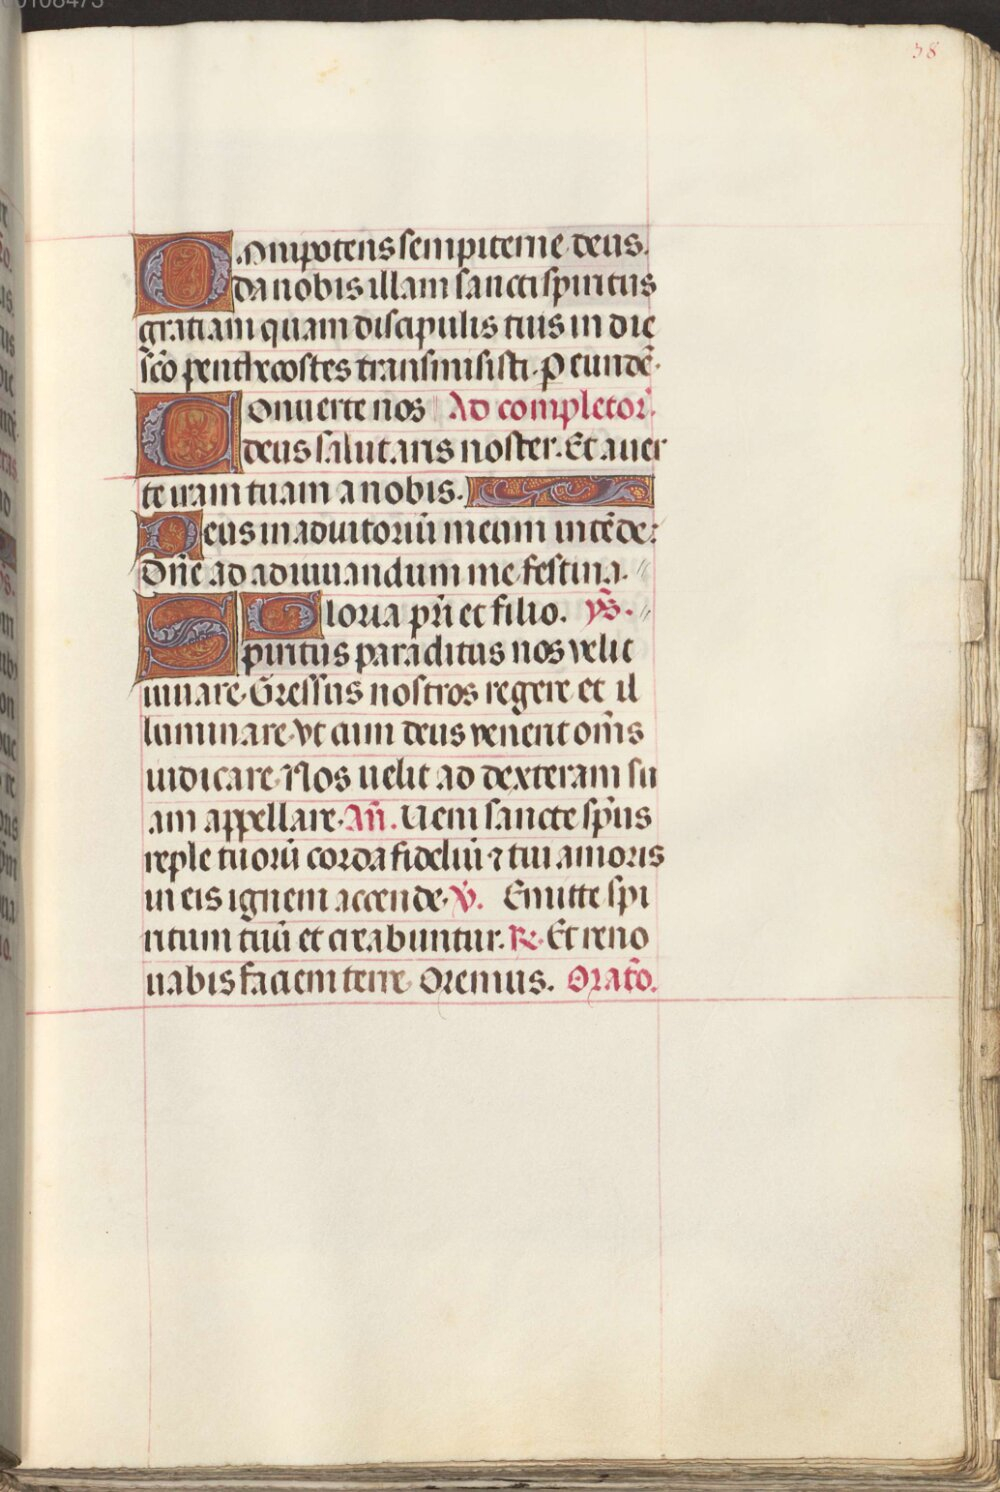 38
Omnipotens sempiterne deus.
da nobis illam sancti spiritus
gratiam quam discipulis tuis in die
sc̄o penthecostes transmisisti. P eundē.
Conuerte nos Ad completoꝝ̄.
deus salutaris noster. Et auer
te iram tuam a nobis.
Deus in adiutoriū meum intēde:
Dn̄e ad adiuuandum me festina.
Gloria pr̄i et filio. ym̄s.
Spiritus paraclitus nos velit
iuuare. Gressus nostros regere et il
luminare. vt cum deus venerit om̄s
iudicare. Nos uelit ad dexteram su
am appellare. Añ. Ueni sancte sp̄us
reple tuorū corda fideliū ⁊ tui amoris
in eis ignem accende. V̄. Emitte spi
ritum tuū et creabuntur. R̄. Et reno
uabis faciem terre. Oremus. Orat̄o.